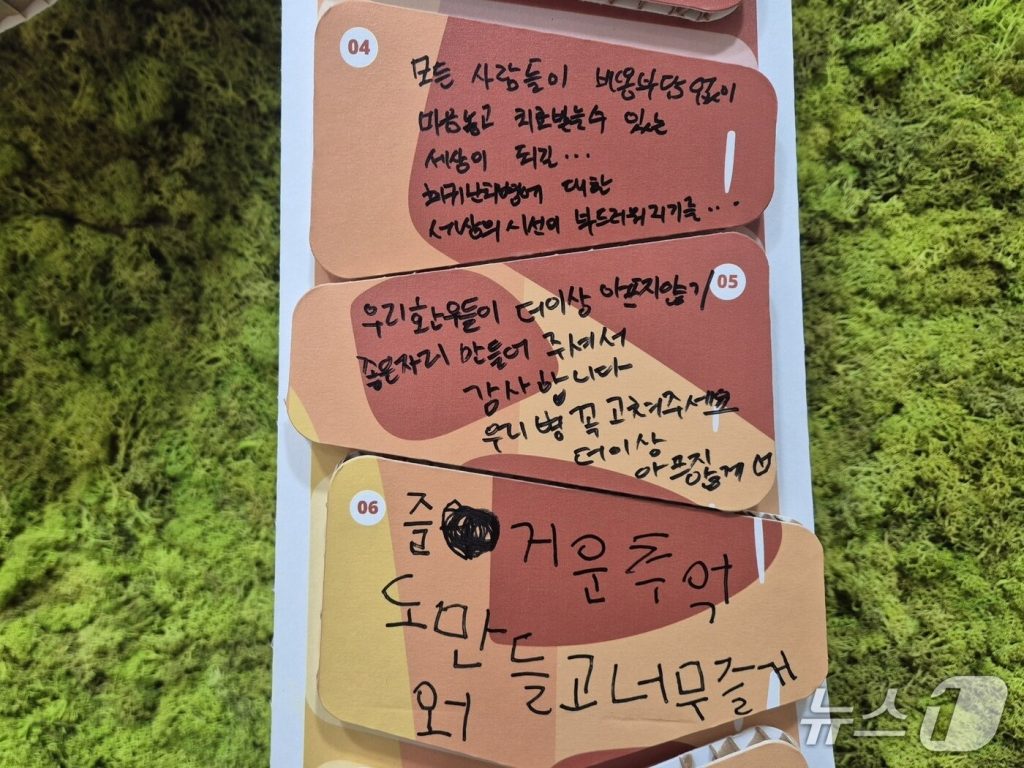 04
모든 사람들이 비용부담 없이
마음놓고 치료받을수 있는
세상이 되길...
희귀난치병에 대한
세상의 시선이 부드러워지기를...
05
우리환우들이 더이상 아프지않기!
좋은자리 만들어 주셔서
감사합니다
우리 병 꼭 고쳐주세요
더이상
아프지않게
06
즐거운추억
도만들고너무즐거
워
뉴스1